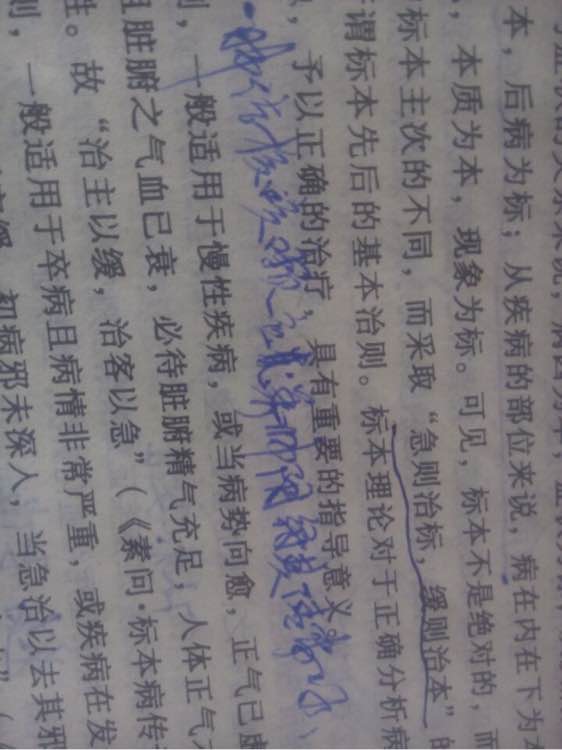 症状的关系来说，病因为本，症状
本，后病为标；从疾病的部位来说，病在内在下为
，本质为本，现象为标。可见，标本不是绝对的，而
标本主次的不同，而采取“急则治标，缓则治本”的
谓标本先后的基本治则。标本理论对于正确分析病
，予以正确的治疗，具有重要的指导意义。
，一般适用于慢性疾病，或当病势向愈，正气已虚
且脏腑之气血已衰，必待脏腑精气充足，人体正气
性。故“治主以缓，治客以急”（《素问·标本病传
则，一般适用于卒病且病情非常严重，或疾病在发
初病邪未深入，当急治以去其邪